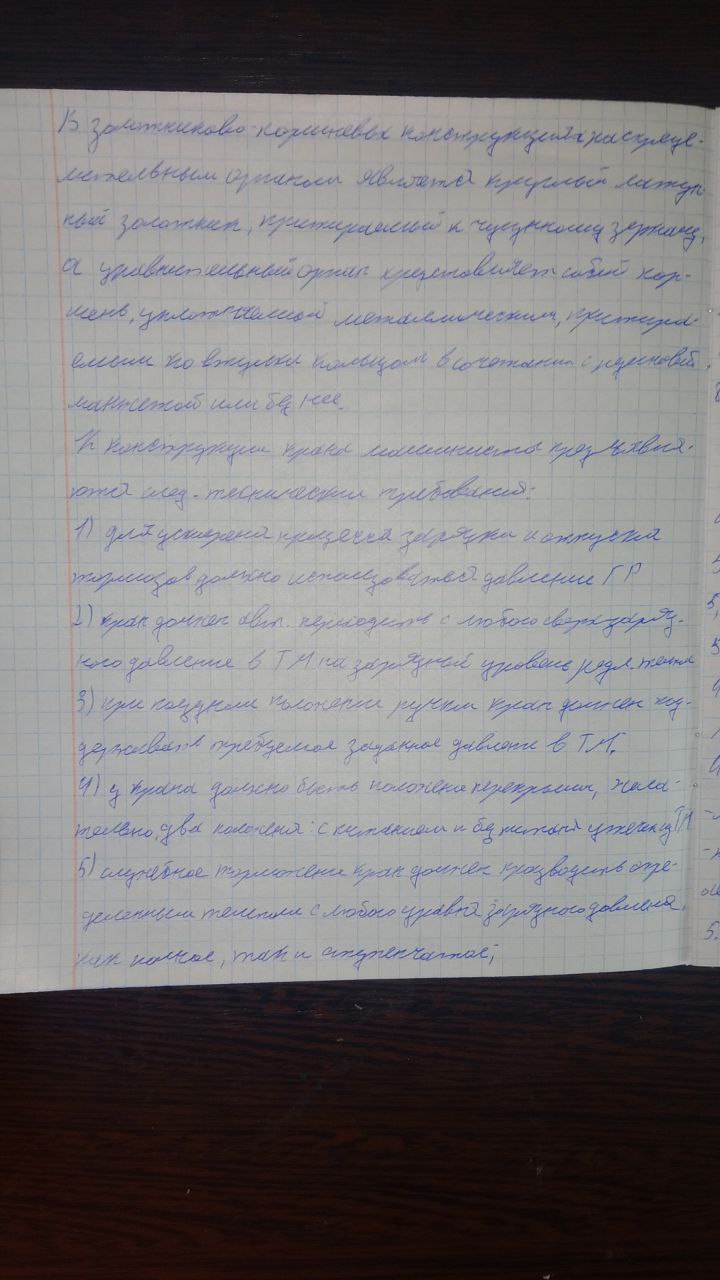 В золотниково-поршневых конструкциях распреде-
лительным органом является круглый латун-
ный золотник, притираемый к чугунному зеркалу,
а уравнительный орган представляет собой пор-
шень, уплотняемый металлическим, притира-
емым по втулки кольцом в сочетании с резиновой
манжетой или без нее.
К конструкции крана машиниста предъявля-
ются след. технически требования:
1) для ускорена процесса зарядки и отпуска
тормозов должно использоваться давление ГР
2) кран должен авт. переходить с любого сверхзаряд-
ного давление в ТМ на зарядный уровень редл. темпом
3) при поездном положении ручки кран должен под-
держивать требуемое заданное давлени в ТМ.
4) у крана должно быть положени перекрыши, жела-
тельно, два положеня: с питанием и без питаня утечек из ТМ
5) служебное торможени кран должен производить опре-
деленным темпом с любого уравня зарядного давления,
как полное, так и ступенчатое;
5,
5
5.